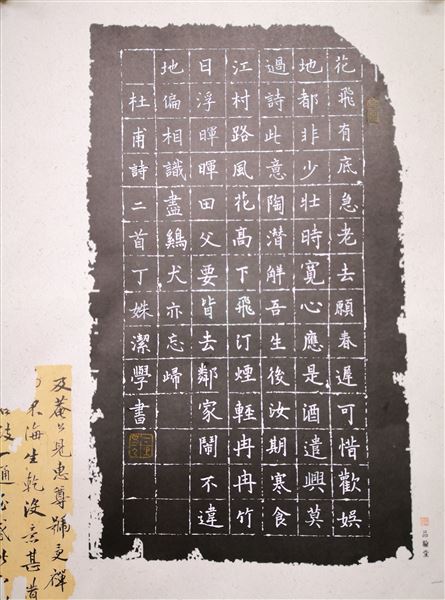 花飛有底急老去願春遲可惜歡娛
地都非少壯時寬心應是酒遣興莫
過詩此意陶潛觧吾生後汝期寒食
江村路風花高下飛汀煙輕冉冉竹
日浮暉暉田父要皆去鄰家鬧不違
地偏相識盡鷄犬亦忘歸
杜甫詩二首丁姝潔學書
及菴見惠尊號禪
東海生乾沒言甚
一通
品翰堂